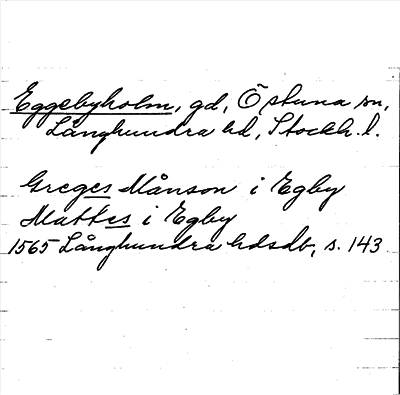 Eggebyholm, gd, Östuna sn,
Långhundra hd, Stockh. l.
Greges Månson i Egby
Mattes i Egby
1565 Långhundra hdsdb, s. 143